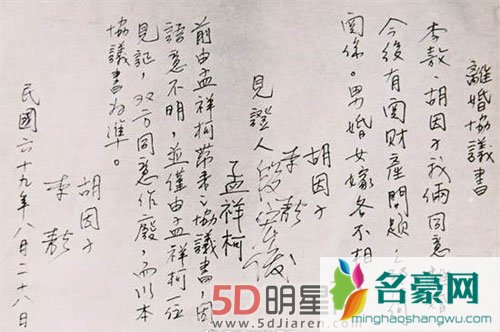 離婚協議書
李敖、胡因子我倆同意
今後有関財産問題，
関係。男婚女嫁各不相
胡因子
李敖
見證人段宏俊
孟祥柯
前由孟祥柯帶來之協議書，因
語意不明，並僅由孟祥柯一位
見証，双方同意作廢，而以本
協議書為準。
胡因子
李敖
民國六十九年八月二十八日
5D明星
www.5DJiaren.com
名豪网
minghaoshangmao.cn